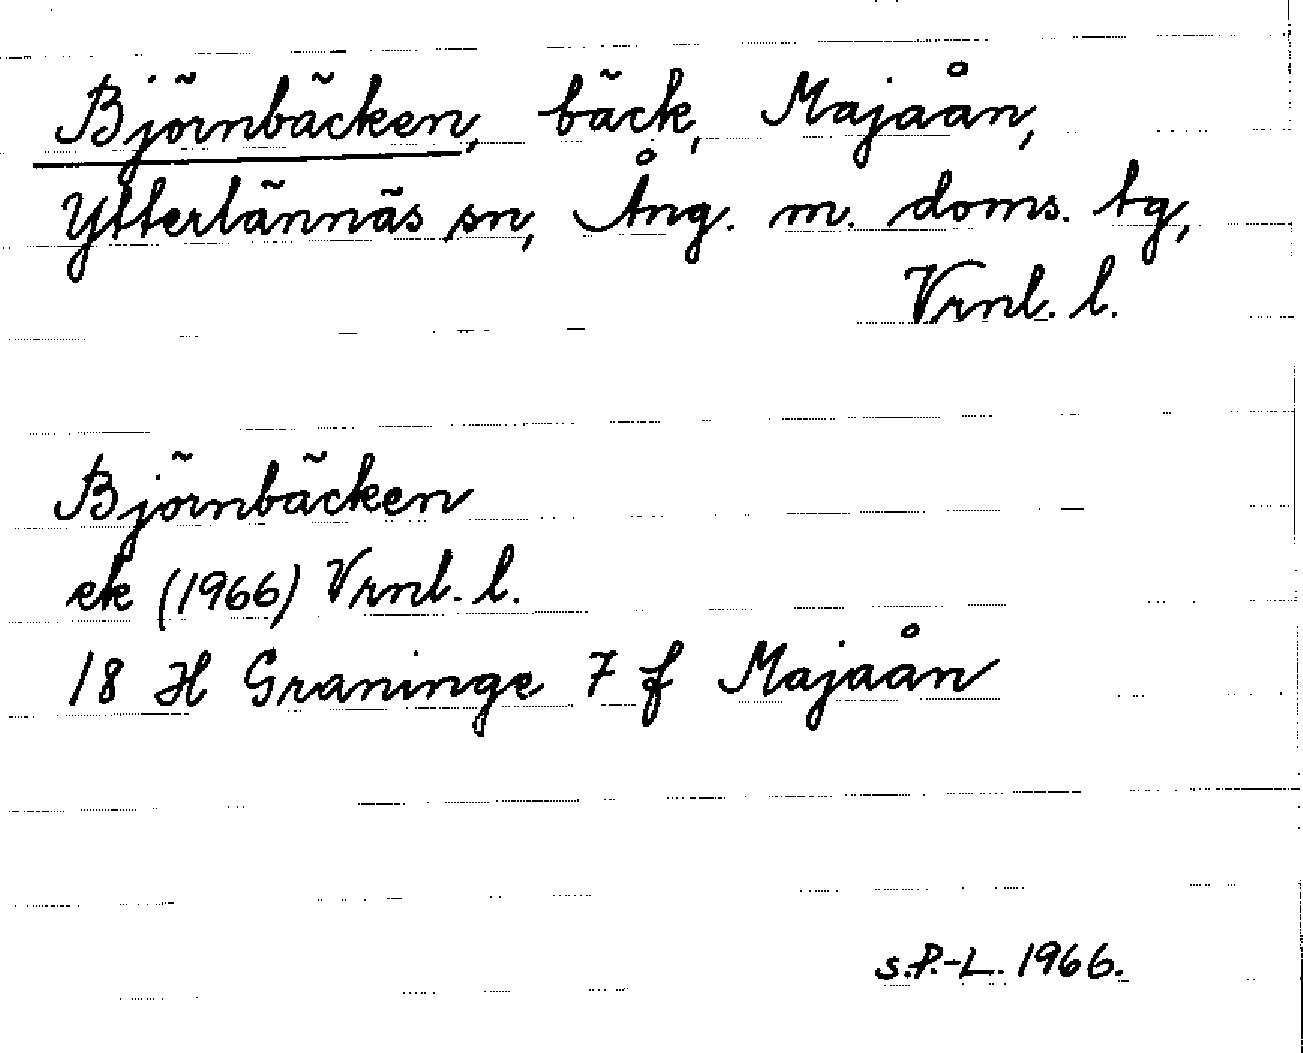 Björnbäcken, bäck, Majaån,
Ytterlännäs sn, Ång. m. doms. tg,
Vrnl. l.
Björnbäcken
ek (1966) Vrnl. l.
18 H Graninge 7 f Majaån
s.P.-L. 1966.